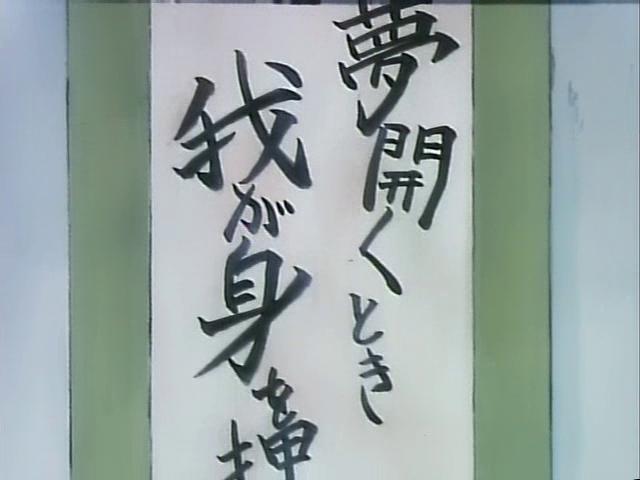 夢開くとき
我が身を